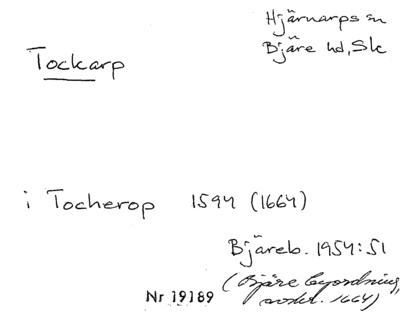 Hjärnarps sn
Bjäre hd, Sk
Tockarp
i Tocherop 1594 (1664)
Bjäreb. 1954:51
(Bjäre byordning,
avskr. 1664)
Nr 19189